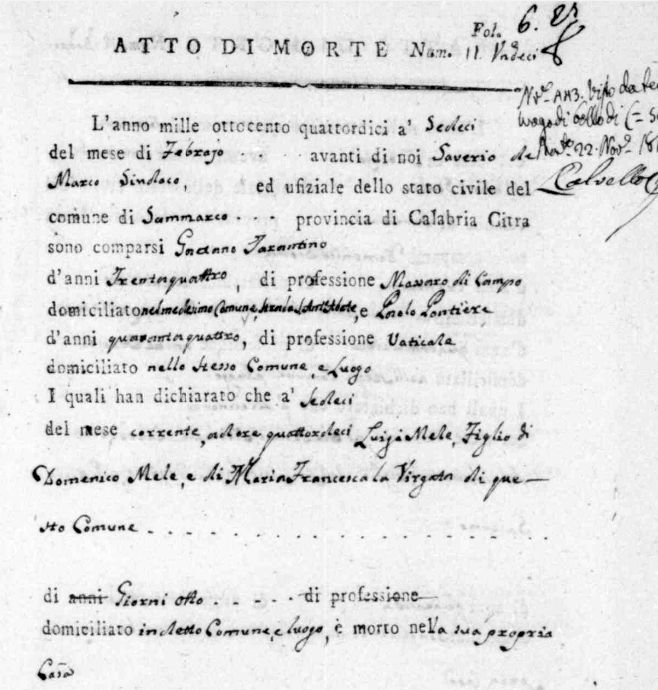 Fol. 6.
ATTO DI MORTE Num. 11. Undeci
L'anno mille ottocento quattordici a' Sedeci
del mese di Febrajo avanti di noi Saverio de
Marco Sindaco, ed ufiziale dello stato civile del
comune di Sammarco - - - provincia di Calabria Citra
sono comparsi Gaetano Tarantino
d'anni Trentaquattro, di professione Massaro di Campo
domiciliato nel medesimo Comune, e Paolo Pontiere
d'anni quarantaquattro, di professione Vaticale
domiciliato nello stesso Comune e Luogo
I quali han dichiarato che a' Sedeci
del mese corrente, ad ore quattordeci Luigi Mele, Figlio di
Domenico Mele, e di Maria Francesca la Virgata di que-
sto Comune - - - - - - - - - - - - - - -
di anni Giorni otto - - - - - di professione
domiciliato in detto Comune, e luogo, è morto nella sua propria
Casa